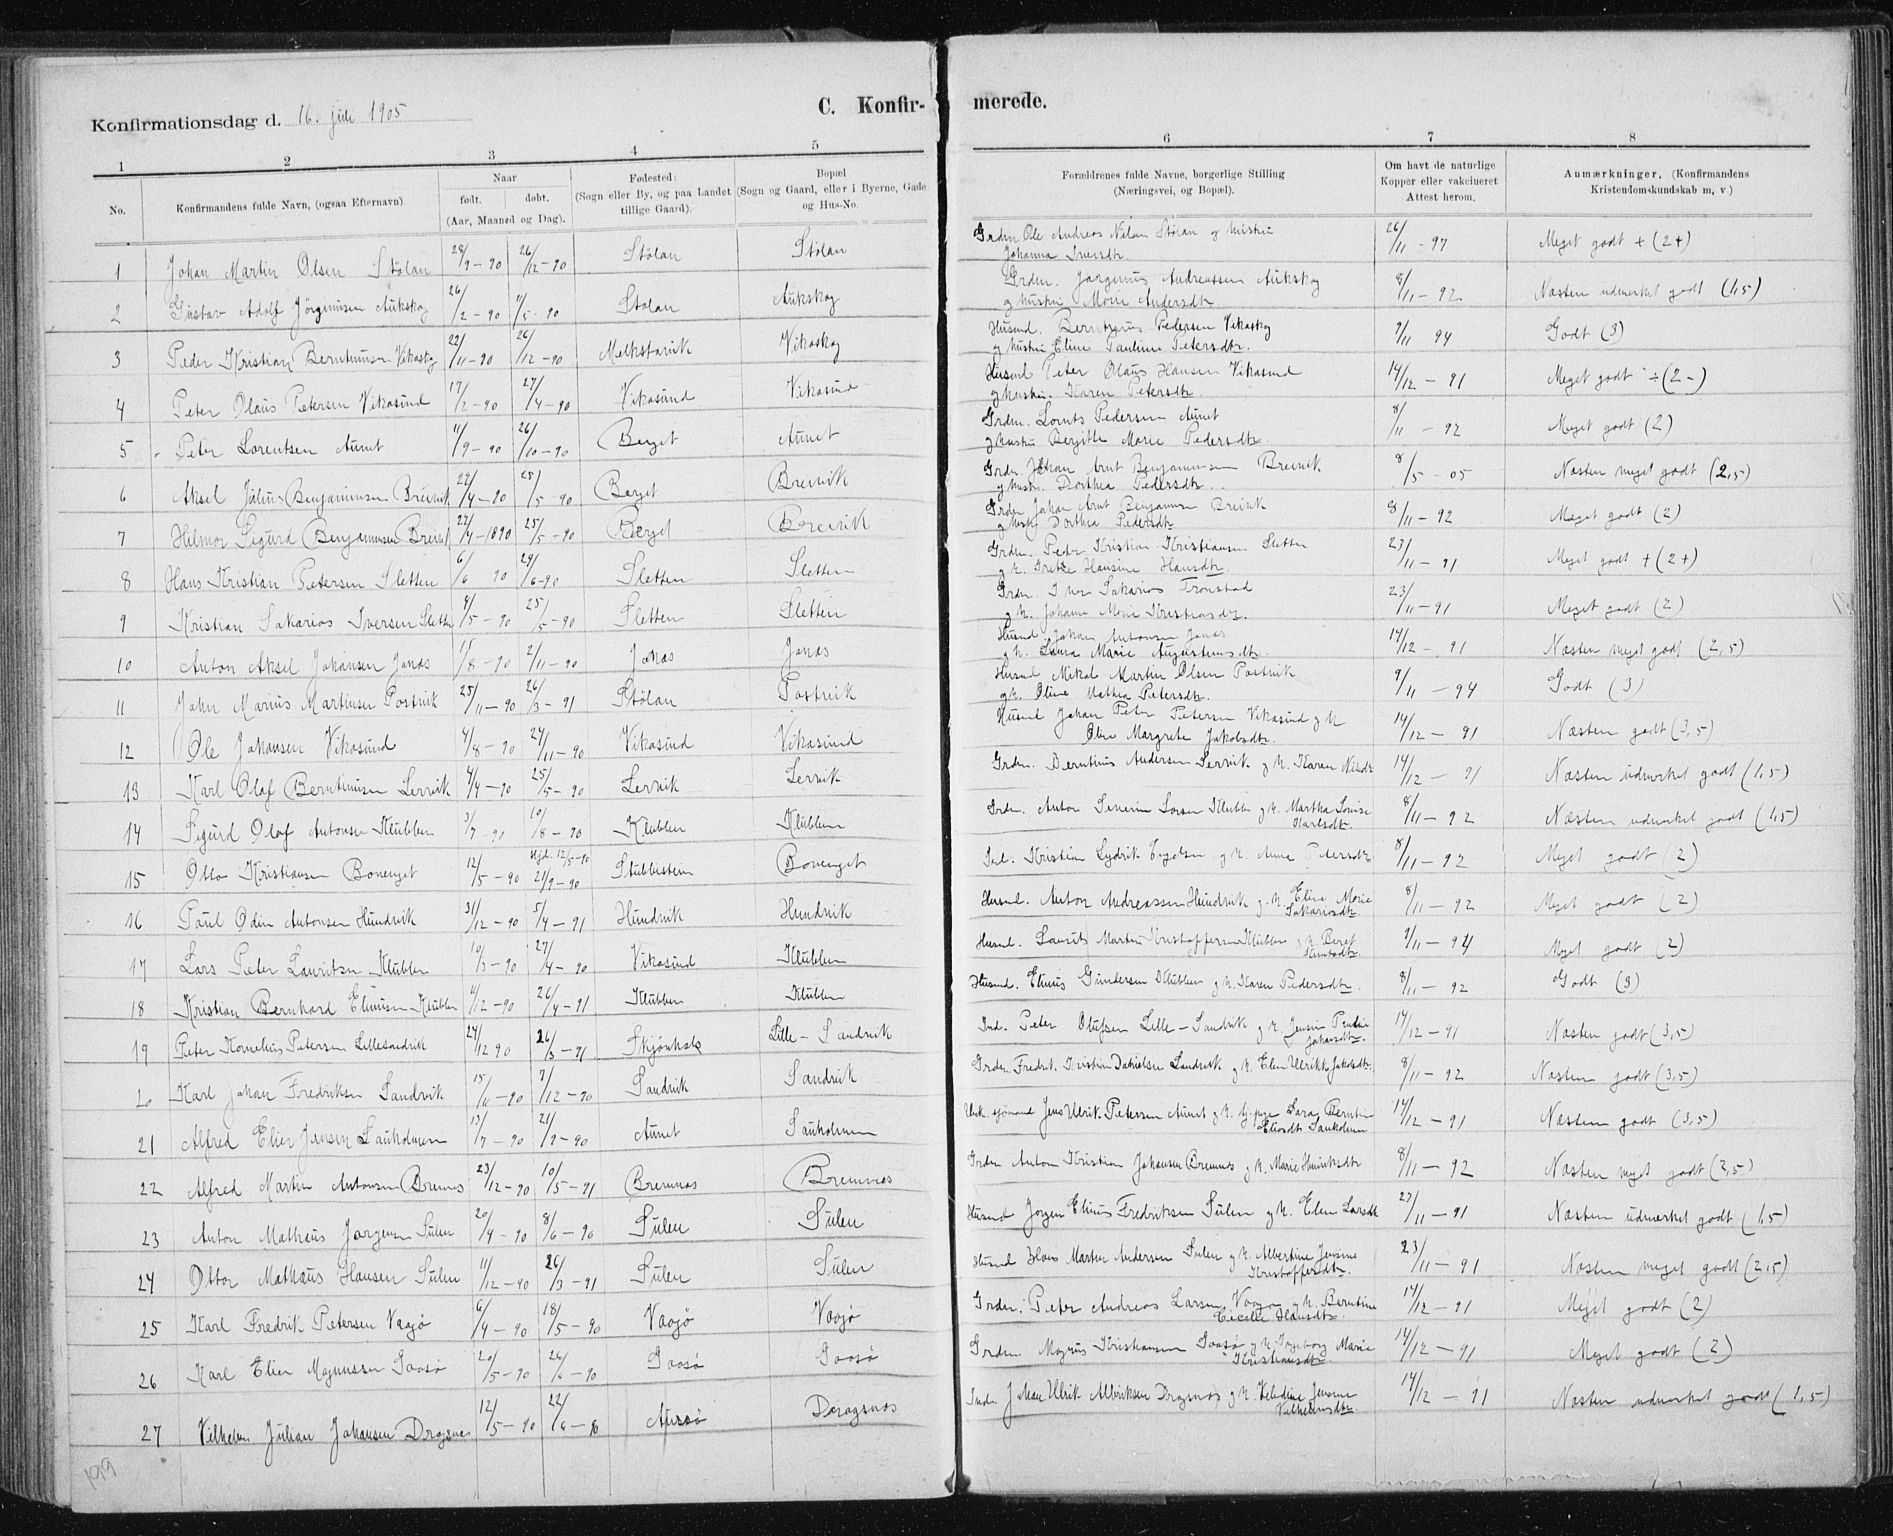 C. Konfir- merede.
Konfirmationsdag d. 16. juli 1905
1 2 3 4 5 6 7 8
No. Konfirmandens fulde Navn, (ogsaa Efternavn) Naar født. døbt. (Aar, Maaned og Dag). Fødested: (Sogn eller By, og paa Landet tillige Gaard). Bopæl (Sogn og Gaard, eller i Byerne, Gade og Hus-No. Forældrenes fulde Navne, borgerlige Stilling (Næringsvei, og Bopæl). Om havt de naturlige Kopper eller vakcineret Attest herom. Anmærkninger. (Konfirmandens Kristendomskundskab m, v)
1 Johan Martin Olsen Stølan 28/9-90 26/12-90 Stølan Stølan Grdm Ole Andreas Nilsen Stølan og hustru Johanna Iversdtr. 26/11-97 Meget godt + (2+)
2 Gustav Adolf Jörginusen Aukskog 26/2-90 /5-90 Stølan Aukskog Grdm. Jørginus Andreassen Aukskog og hustru Marie Andersdtr. 8/11-92 Næsten udmerket godt (1,5)
3 Peder Kristian Berntinusen Vikaskog 22/11-90 26/12-90 Melkstavik Vikaskog Husmd. Berntinus Pedersen Vikaskog og hustru Eline Pauline Petersdtr. 9/11 94 Godt (3)
4 Peter Olaus Petersen Vikasund 17/2-90 27/4-90 Vikasund Vikasund Husmd Peter Olaus Hansen Vikasund og hustru Karen Petersdtr. 14/12-91 Meget godt ÷ (2-)
5 Peter Lorentsen Aunet 11/9-90 26/10-90 Berget Aunet Grdm. Lornts Pedersen Aunet og hustru Bergitte Marie Pedersdtr. 8/11-92 Meget godt (2)
6 Aksel Julius Benjaminsen Breivik 22/4-90 25/5-90 Berget Breivik Grdm Johan Arnt Benjaminsen Breivik og hustr. Dorthea Pedersdtr. 8/5-05 Næsten meget godt (2,5)
7 Hilmar Sigurd Benjaminsen Breivik 22/4-1890 25/5-90 Berget Breivik Grdm Johan Arnt Benjaminsen Breivik og hustr Dorthea Pedersdtr 8/11-92 Meget godt (2)
8 Hans Kristian Petersen Sletten 6/6 90 29/6-90 Sletten Sletten Grdm. Peter Kristian Kristiansen Sletten og h. Grethe Hansine Hansdtr. 23/11-91 Meget godt + (2+)
9 Kristian Sakarias Iversen Sletten 4/5-90 25/5-90 Sletten Sletten Grdm Iver Sakarias Tronstad og h. Johanne Marie Kristiansdtr. 23/11-91 Meget godt (2)
10 Anton Aksel Johansen Janas 1/8-90 2/11-90 Janas Janas Husmd Johan Antonsen Janas og h. Laura Marie Augustinusdtr. 14/12-91 Næsten meget godt (2,5)
11 Johan Marius Martinsen Postvik 25/11-90 26/3-91 Stølan Postvik Husmd Mikal Martin Olsen Postvik og h. Oline Mathea Petersdtr. 9/11-94 Godt (3)
12 Ole Johansen Vikasund 4/8-90 24/11-90 Vikasund Vikasund Husmd Johan Peter Petersen Vikasund og h Oline Margrete Jakobsdtr. 14/12-91 Næsten godt (3,5)
13 Karl Olaf Berntinusen Lervik 4/4-90 25/5-90 Lervik Lervik Grdm. Berntinus Andersen Lervik og h. Karen Nilsdtr 14/12-91 Næsten udmerket godt (1,5)
14 Sigurd Olaf Antonsen Klubben 3/7-90 10/8-90 Klubben Klubben Grdm. Anton Severin Larsen Klubben og h. Martha Lovise Karlsdtr. 8/11-92 Næsten udmerket godt (1,5)
15 Otto Kristiansen Bonenget 12/5-90 Hjd. 12/5-90 21/9-90 Stubbestein Bonenget Ind. Kristian Lydrik og h. Anne Petersdtr 8/11-92 Meget godt (2)
16 Paul Odin Antonsen Hundvik 31/12-90 5/4-91 Hundvik Hundvik Husmd. Anton Andreassen Hundvik og h. Eline Marie Sakariasdtr. 8/11-92 Meget godt (2)
17 Lars Peter Lauritsen Klubben 10/3-90 27/4-90 Vikasund Klubben Husmd. Laurits Martin Kristoffersen Klubben og h. Beret 9/11-94 Meget godt (2)
18 Kristian Bernhard Eliusen Klubben /12-90 26/4-91 Klubben Klubben Husmd. Elius Gundersen Klubben og h. Karen Pedersdtr. 8/11-92 Godt (3)
19 Peter Kornelius Petersen Lillesandvik 24/12 90 26/3-91 Skjønhals Lille-Sandvik Ind. Peter Olufsen Lille-Sandvik og h Johansdtr. 14/12-91 Næsten godt (3,5)
20 Karl Johan Fredriksen Sandvik 15/11-90 7/12-90 Sandvik Sandvik Grdm. Fredrik Kristian Danielsen Sandvik og h. Elen Ulrikke Jakobsdtr. 8/11-92 Næsten godt (3,5)
21 Alfred Elier Jensen Sauholmen 13/7-90 21/9-90 Aunet Sauholmen sjømand Jens Ulrik Petersen Aunet og Sara Berntin Eliasdtr Sauholmen 14/12-91 Næsten godt (3,5)
22 Alfred Martin Antonsen Bremnes 23/12-90 10/5-91 Bremnes Bremnes Grdm Anton Kristian Johansen Bremnes og h. Marie Henriksdtr 8/11-92 Næsten meget godt (2,5)
23 Anton Mathæus Jørgensen Sulen 20/4-90 8/6-90 Sulen Sulen Husmd Jørgen Elius Fredriksen Sulen og h. Elen Larsdtr 23/11-91 Næsten udmerket godt (1,5)
24 Ottar Mathæus Hansen Sulen 11/12-90 26/3-91 Sulen Sulen Husmd Hans Martin Andersen Sulen og h. Albertine Jensine Kristoffersdtr. 23/11-91 Næsten meget godt (2,5)
25 Karl Fredrik Petersen Vaajø 6/4-90 18/5-90 Vaajø Vaajø Grdm. Peter Andreas Larsen Vaajø og h. Berntine Cecilie Hansdtr. 14/12-91 Meget godt (2)
26 Karl Elier Magnussen 20/5-90 26/6-90 Grdm. Magnus Kristiansen og h. Ingeborg Marie Kristiansdtr 14/12-91 Meget godt (2)
27 Vilhelm Julian Johansen Dragsnes 12/5-90 22/6-90 Aursø Dragsnes Indr. Johan Ulrik Albriktsen Dragsnes og h. Jensine Vilhelmsdtr 14/12-91 Næsten udmerket godt (1,5)
199